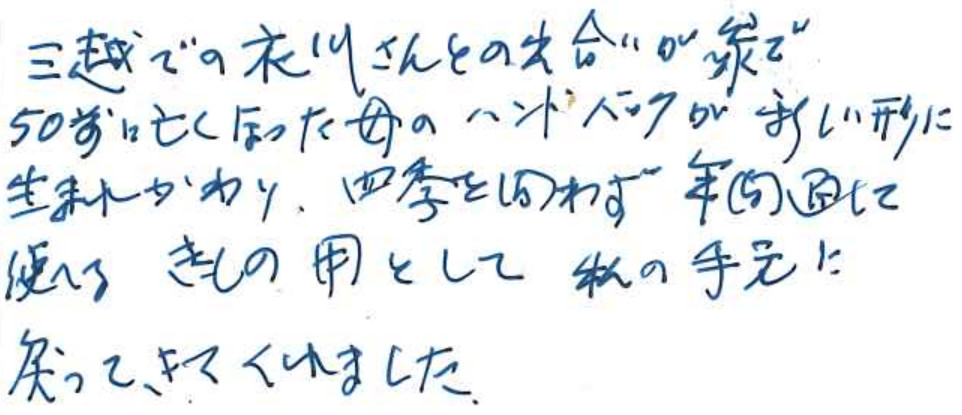 三越での衣川さんとの出合いが縁で
50才で亡くなった母のハンドバックが新しい形に
生まれかわり、四季を問わず年間通して
使へる きもの用として 私の手元に
戻って、きてくれました、